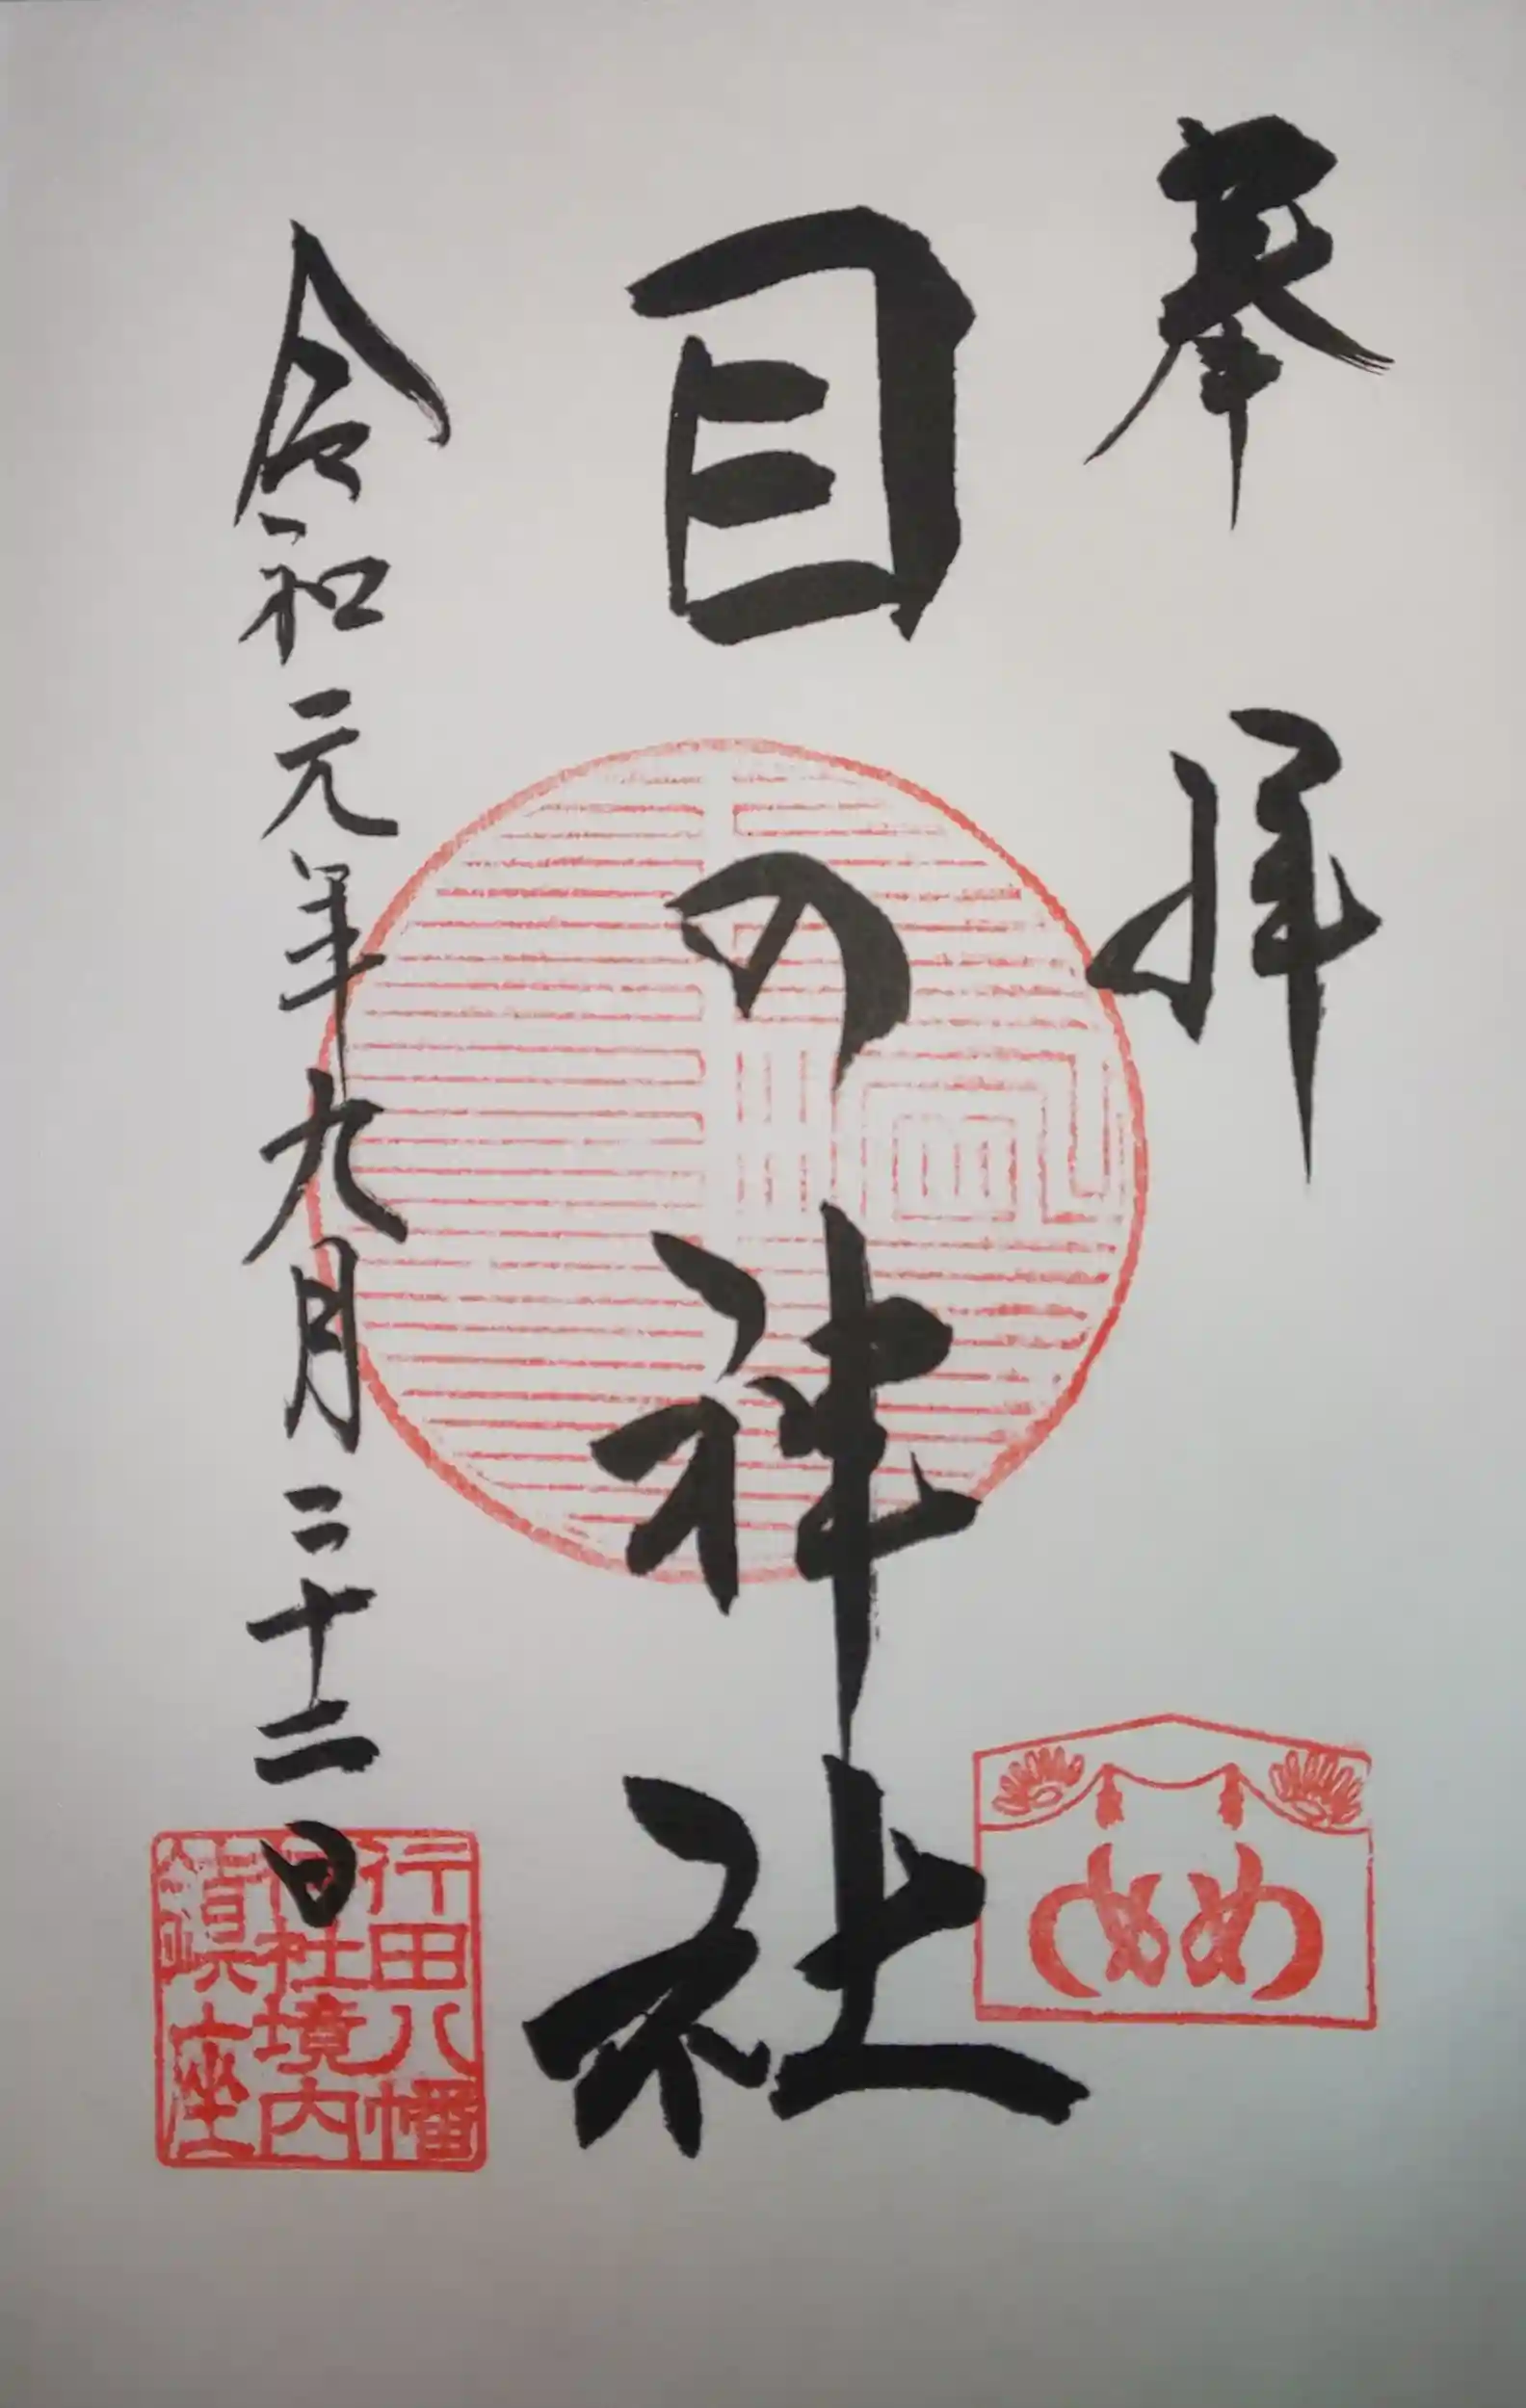 奉拝
目の神社
め
令和元年九月二十二日
行田八幡
神社境内
鎮座